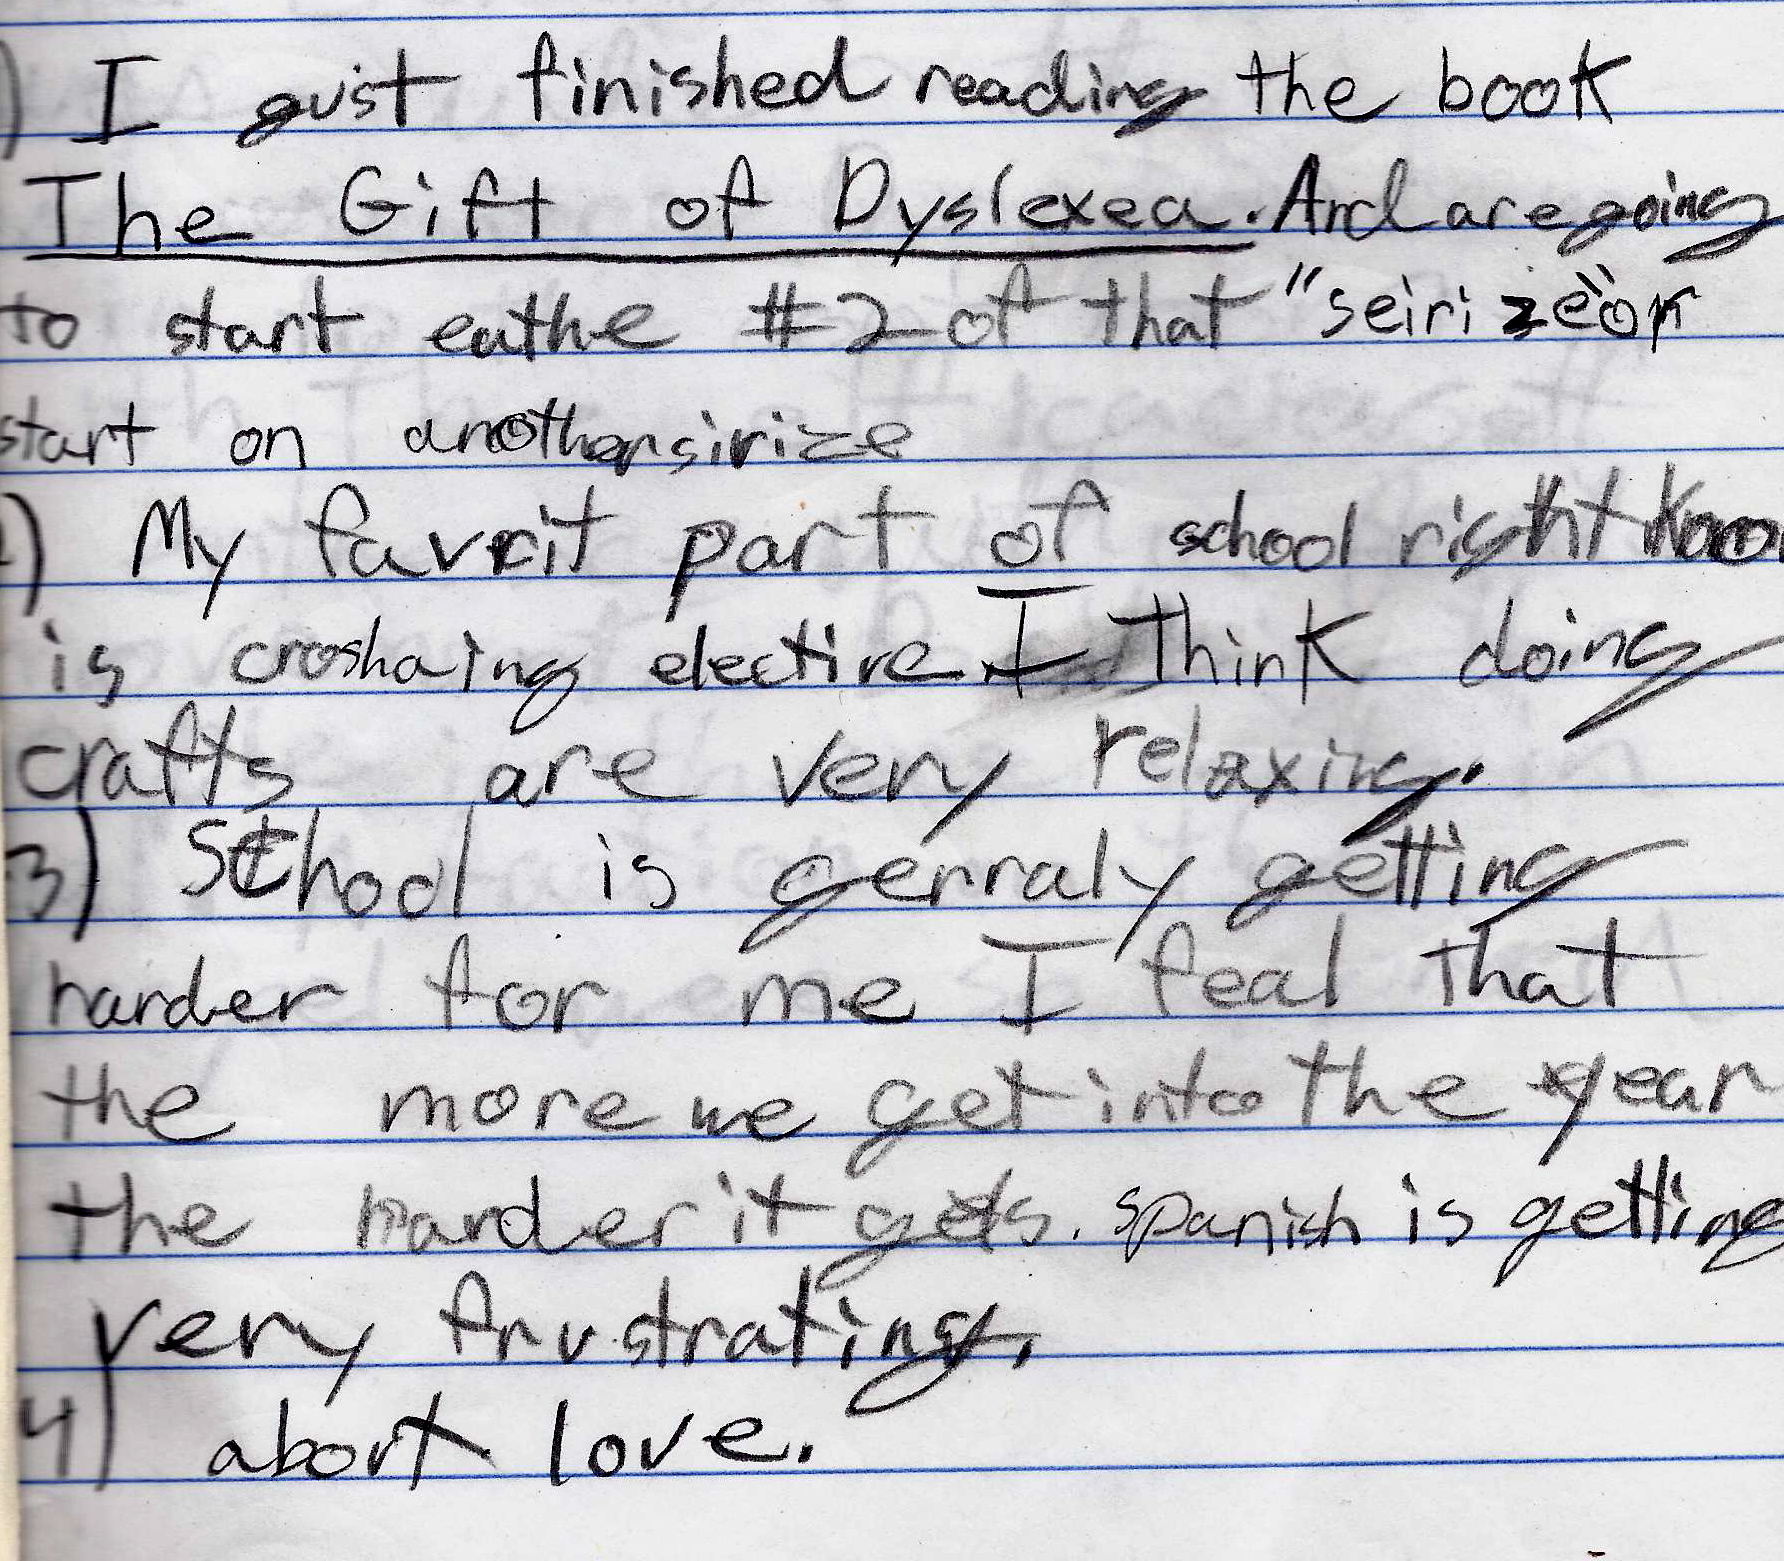 ) I gust finished reading the book
The Gift of Dyslexea. And are going
to start euthe #2 of that "seirize" or
start on another sirize
) My favrit part of school right know
is croshaing elective. I think doing
crafts are very relaxing.
3) School is gerraly getting
harder for me I feal that
the more we get into the year
the harder it gets. spanish is getting
very frustrating.
4) abort love.